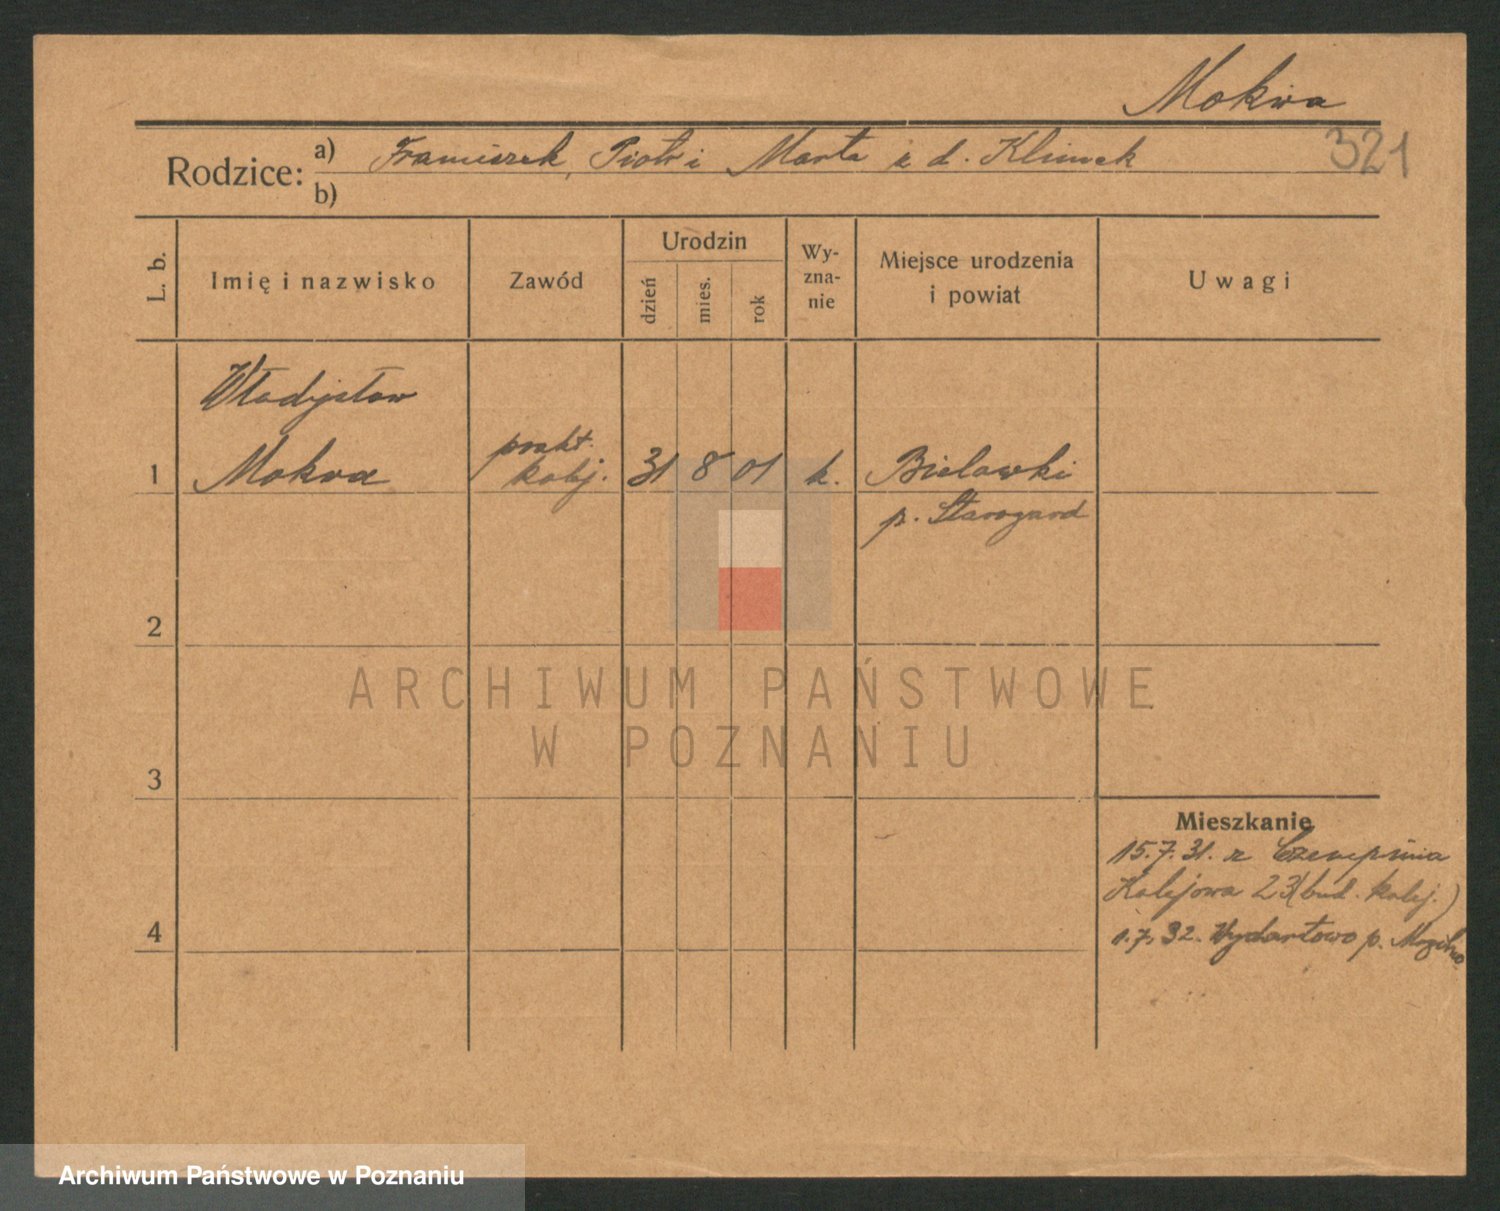 Mokwa
321
Rodzice: a) Franciszek, Piotr i Marta z d. Klimek
b)
L. b.
Imię i nazwisko
Zawód
Urodzin
dzień
mies.
rok
Wy-
zna-
nie
Miejsce urodzenia
i powiat
Uwagi
Władysław
1 Mokwa
prakt.
kolej.
31 8 01 k. Bielawki
p. Starogard
2
3
4
Mieszkanie
15.7.31. z Czempinia
Kolejowa 23 (bud. kolej.)
1.7.32. Wydartowo p. Mogilno
ARCHIWUM PAŃSTWOWE
W POZNANIU
Archiwum Państwowe w Poznaniu